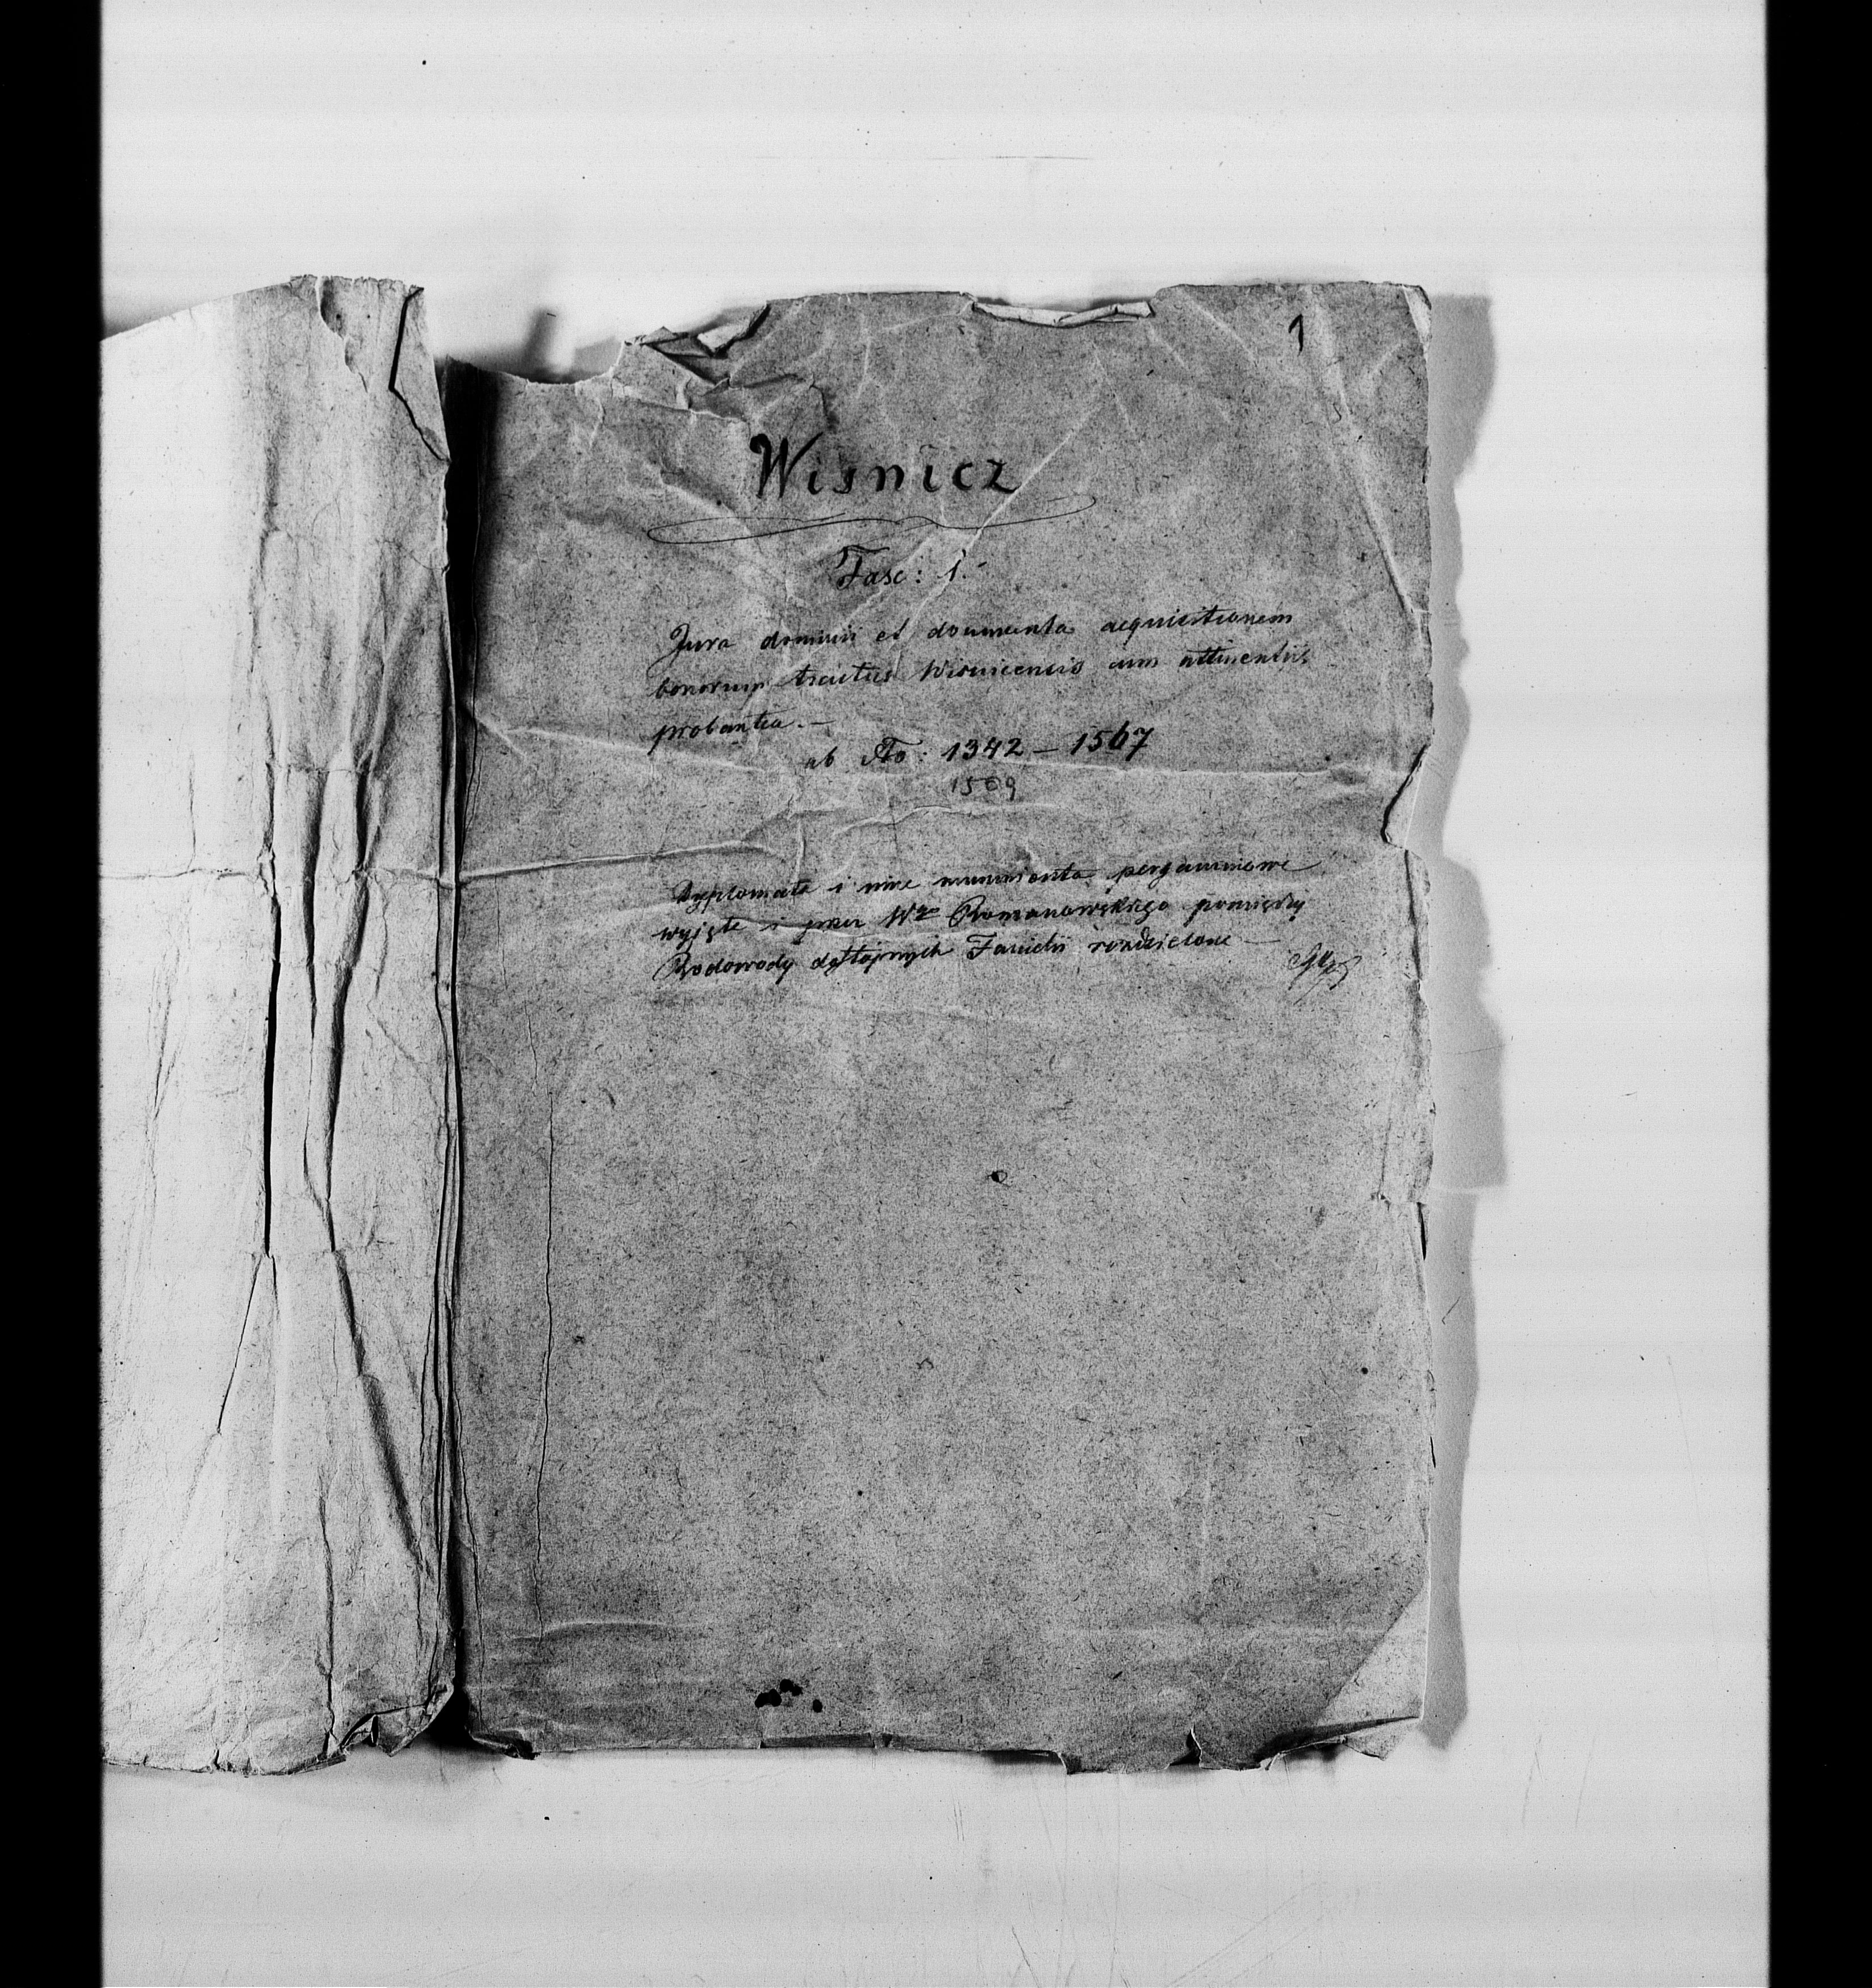 1
Wisnicz
Fasc: 1.
Jura dominii et documenta acquisitionem
bonorum tractus Wisnicensis cum attinentiis
probantia.—
ab Ao: 1342 — 1567
1569
Dyplomata i inne munimenta pergaminowe
wyjęte i przez Wgo Romanowskiego pomiędzy
Rodowody dostojnych Familii rozdzielone —